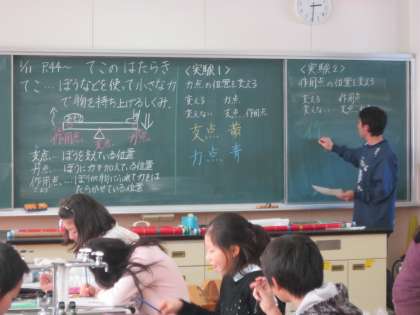 1/11 P.44～ てこのはたらき
てこ…ぼうなどを使って小さな力
で物を持ち上げるしくみ.
作用点 支点 力点
支点…ぼうを支えている位置
力点…ぼうに力を加えている位置
作用点…ぼうが物にふれて力を
はたらかせている位置
〈実験1〉
力点の位置を変える
変える 力点
変えない 支点, 作用点
支点 黄
力点 青
〈実験2〉
作用点の位置を変える
変える 作用点
変えない 支点